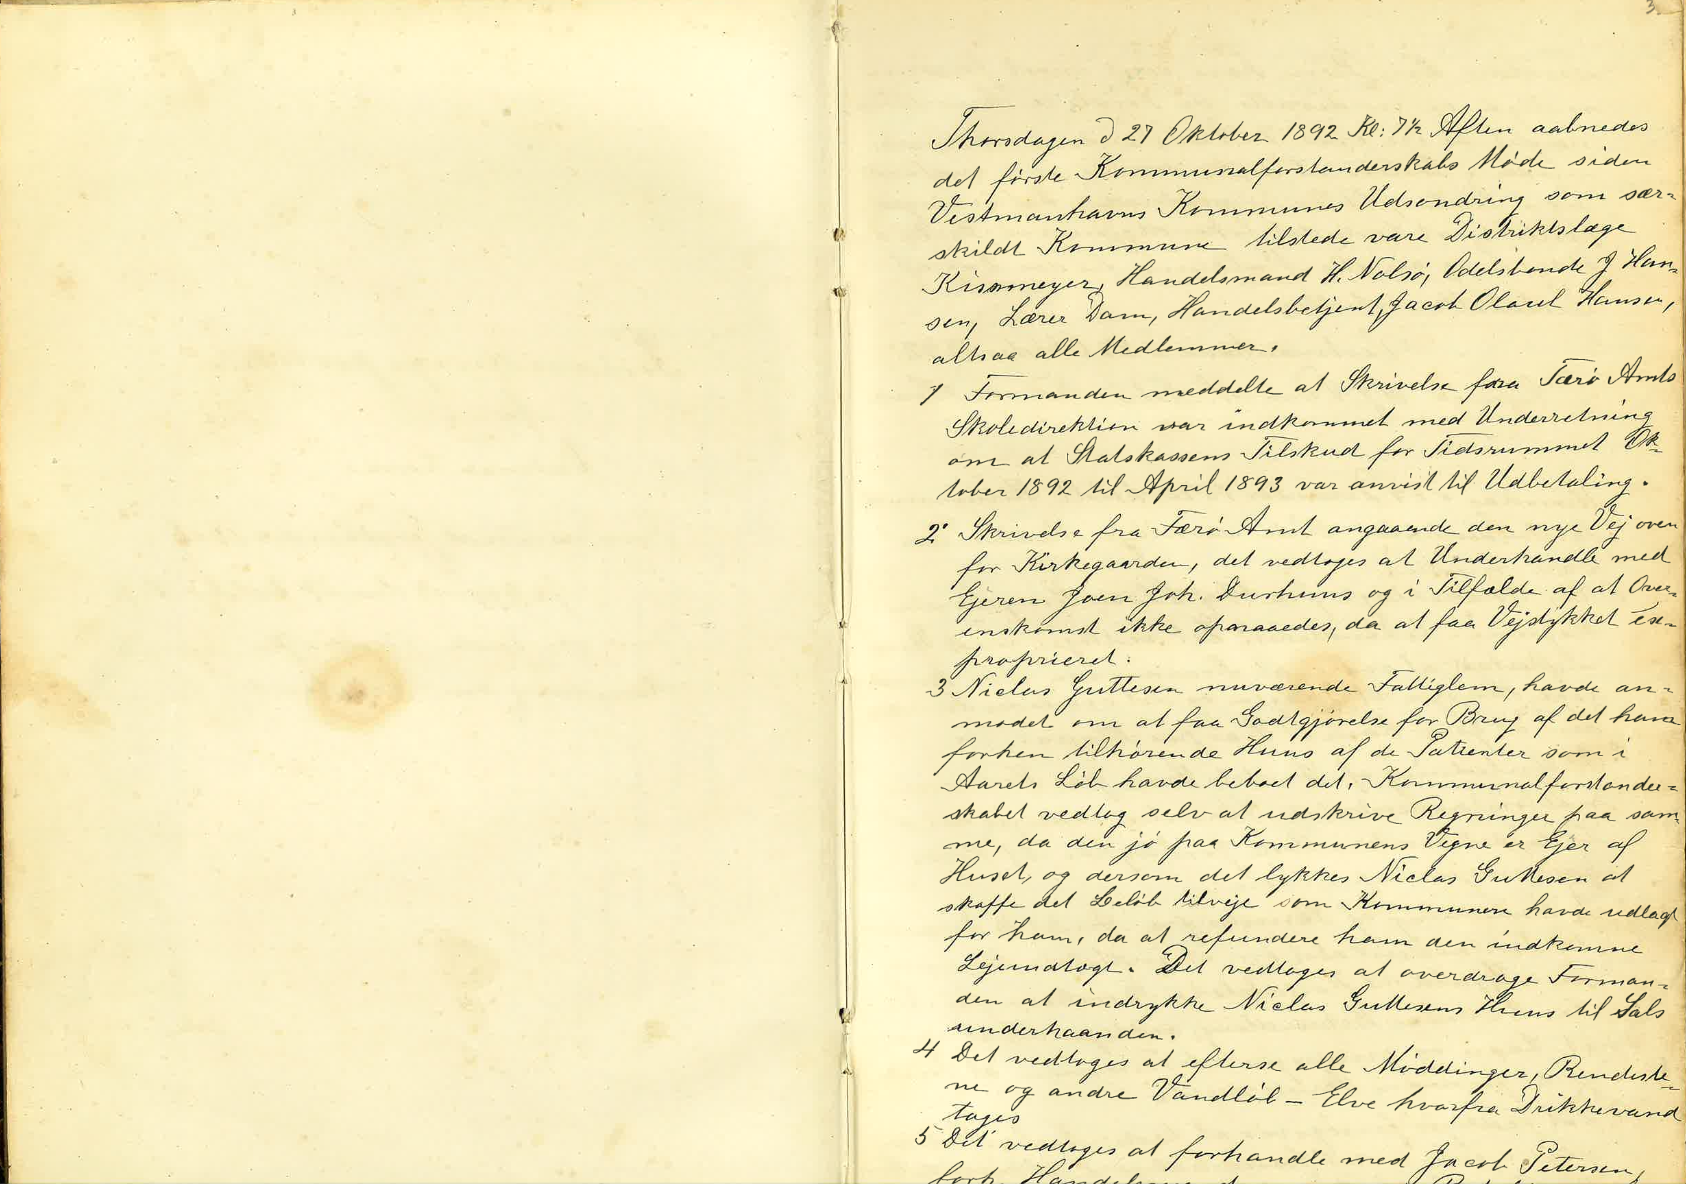 3.
Thorsdagen d 27 Oktober 1892 Kl: 7½ Aften aabnedes
det første Kommunalforstanderskabs Møde siden
Vestmanhavns Kommunes Udsondring som sær-
skildt Kommune tilstede vare Distriktslæge
Kissmeyer, Handelsmand H. Nolsø, Odelsbonde J Han-
sen, Lærer Dam, Handelsbetjent, Jacob Olaul Hansen,
altsaa alle Medlemmer.
1 Formanden meddelte at Skrivelse fra Færø Amts
Skoledirektion var indkommet med Underretning
om at Statskassens Tilskud for Tidsrummet Ok-
tober 1892 til April 1893 var anvist til Udbetaling.
2. Skrivelse fra Færø Amt angaaende den nye Vej oven
for Kirkegaarden, det vedtoges at Underhandle med
Ejeren Joen Joh. Durhuus og i Tilfælde af at Over-
enskomst ikke opnaaedes, da at faa Vejstykket ex-
proprieret.
3 Niclas Guttesen nuværende Fattiglem, havde an-
modet om at faa Godtgjørelse for Brug af det ham
forhen tilhørende Huus af de Patienter som i
Aarets Løb havde beboet det. Kommunalforstander-
skabet vedtog selv at udskrive Regninger paa sam
me, da den jo paa Kommunens Vegne er Ejer af
Huset, og dersom det lykkes Niclas Guttesen at
skaffe det Beløb tilveje som Kommunen havde udlagt
for ham, da at refundere ham den indkomne
Lejeindtægt. Det vedtoges at overdrage Forman-
den at indrykke Niclas Guttesens Huus til Sals
underhaanden.
4 Det vedtoges at efterse alle Møddinger, Rendeste-
ne og andre Vandløb – Elve hvorfra Drikkevand
tages
5 Det vedtoges at forhandle med Jacob Petersen,
forh.